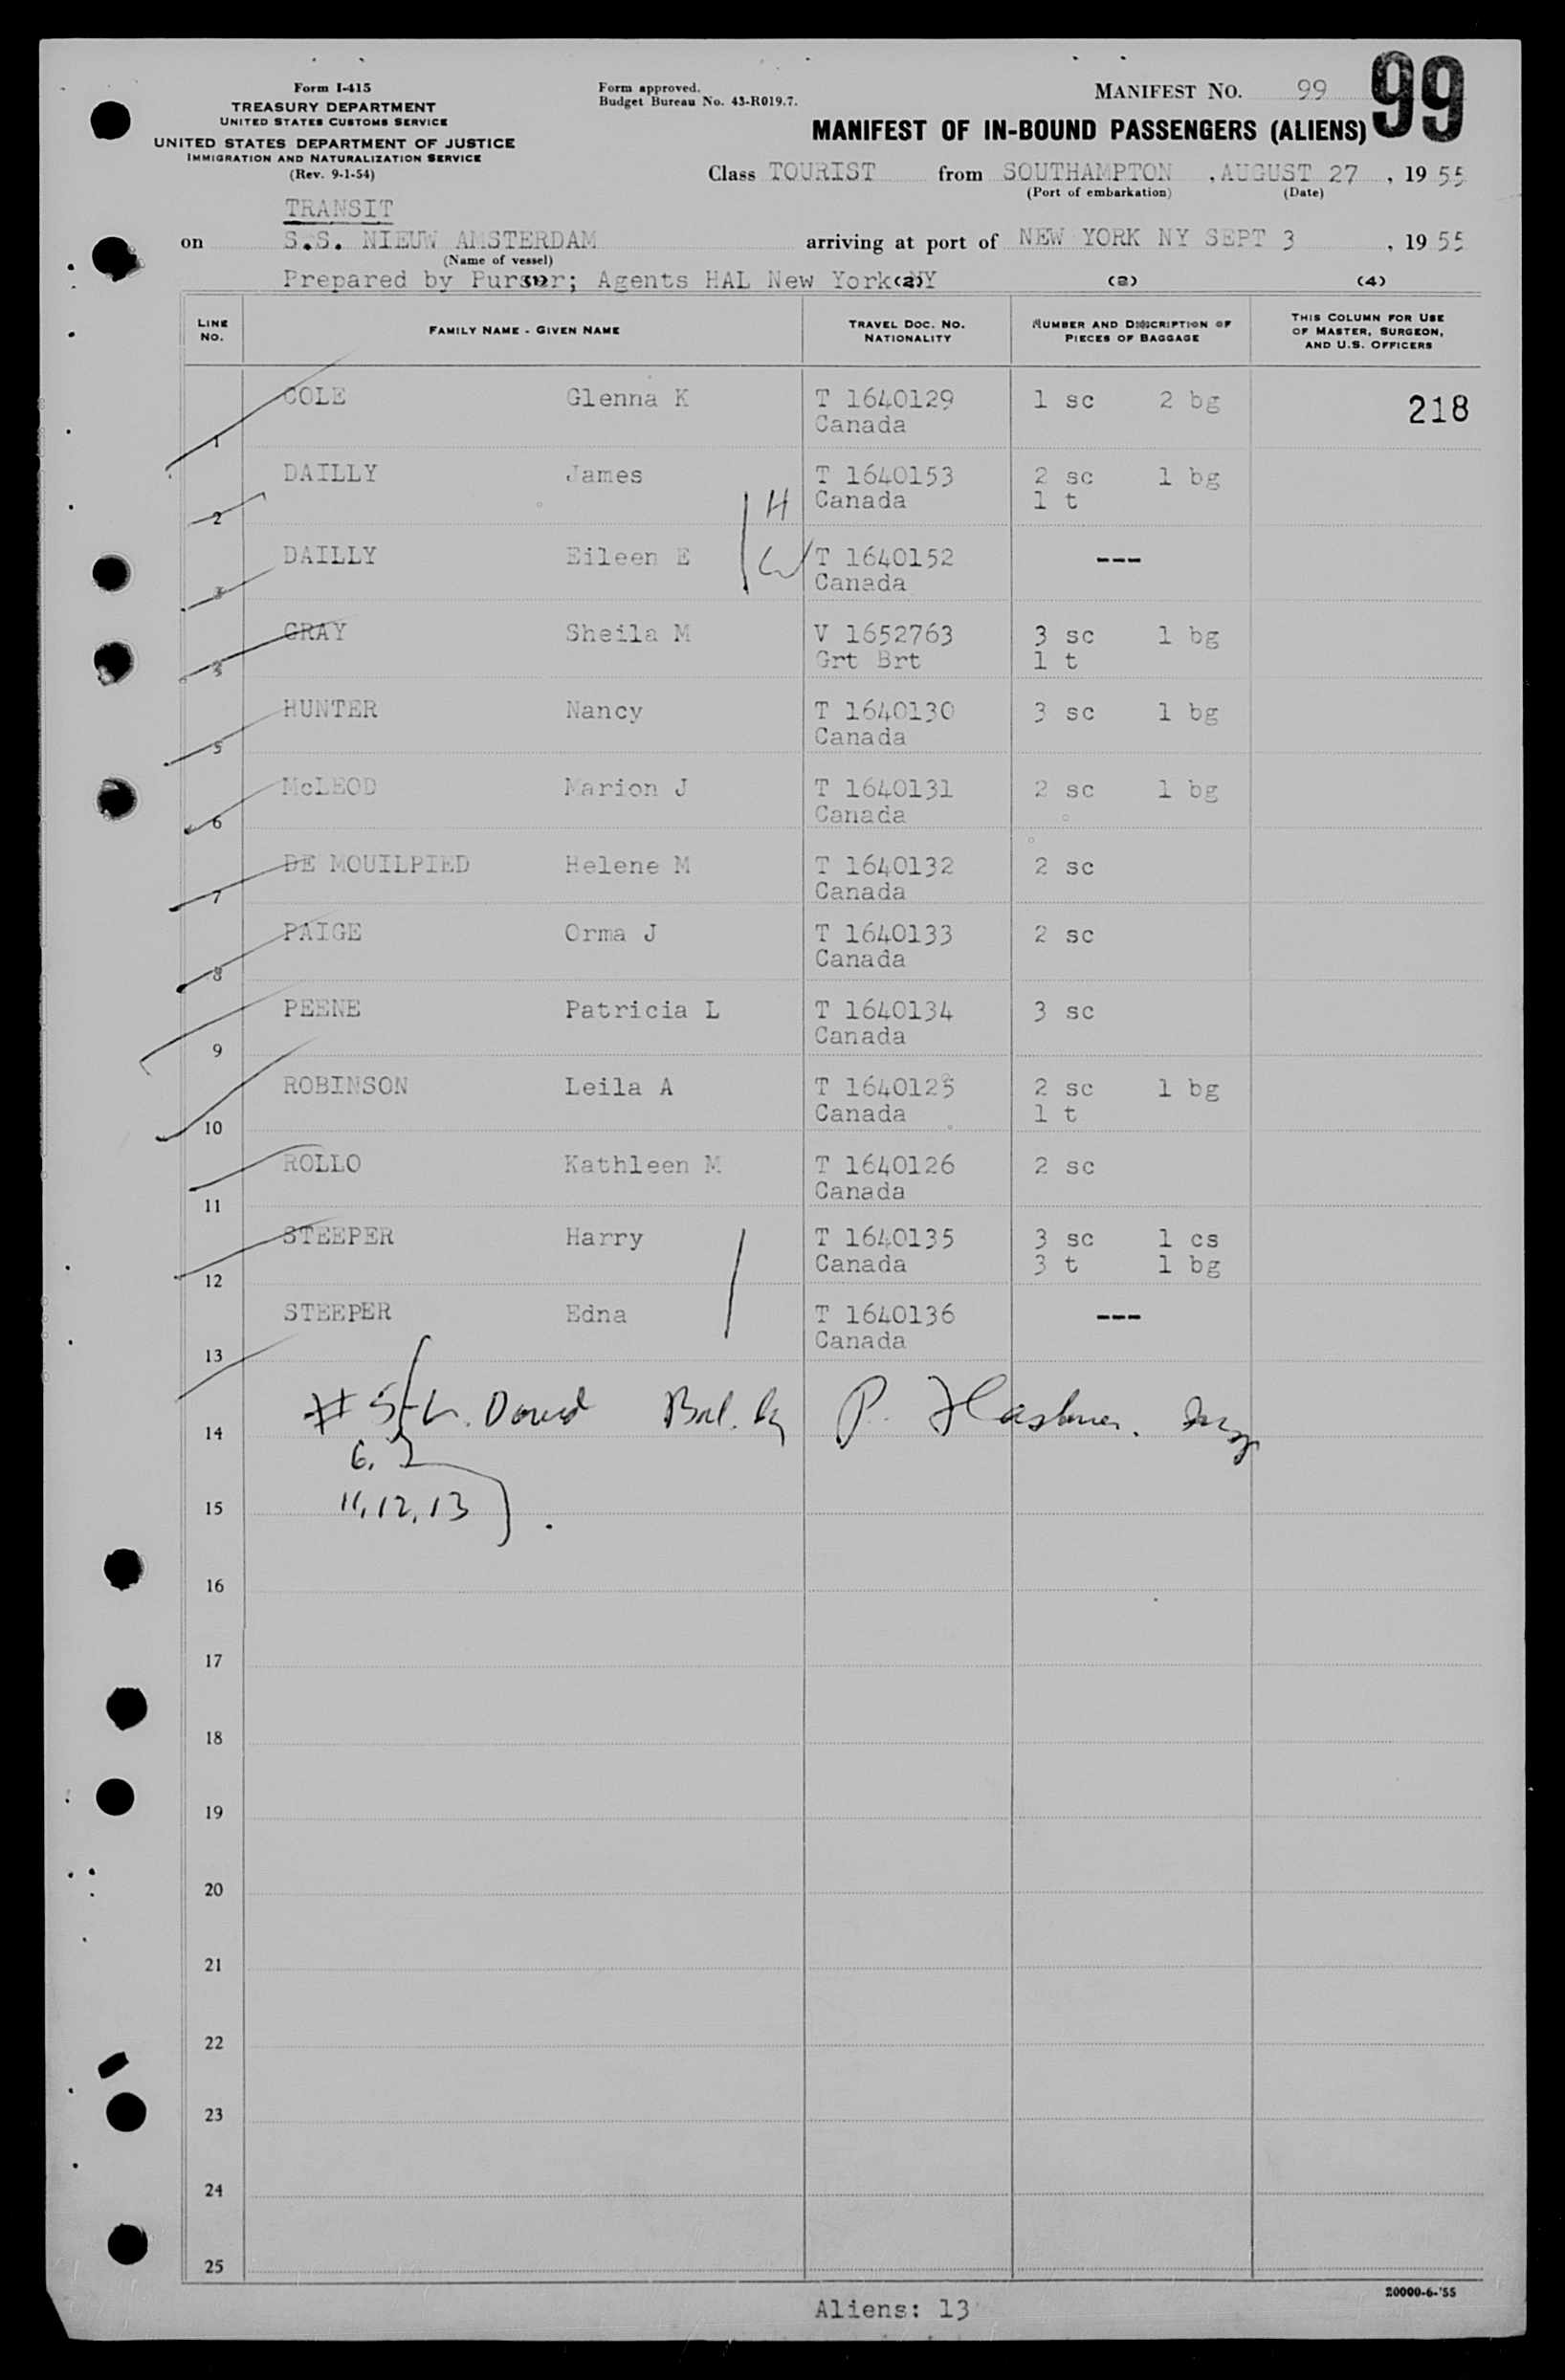 Form I-415
TREASURY DEPARTMENT
UNITED STATES CUSTOMS SERVICE
UNITED STATES DEPARTMENT OF JUSTICE
IMMIGRATION AND NATURALIZATION SERVICE
(Rev. 9-1-54)
Form approved.
Budget Bureau No. 43-R019.7.
MANIFEST NO. 99
99
MANIFEST OF IN-BOUND PASSENGERS (ALIENS)
Class TOURIST from SOUTHAMPTON , AUGUST 27 , 19 55
(Port of embarkation) (Date)
TRANSIT
on S.S. NIEUW AMSTERDAM arriving at port of NEW YORK NY SEPT 3 , 19 55
(Name of vessel)
Prepared by Purser; Agents HAL New York NY (2) (3) (4)
LINE NO. FAMILY NAME - GIVEN NAME TRAVEL DOC. NO. NATIONALITY NUMBER AND DESCRIPTION OF PIECES OF BAGGAGE THIS COLUMN FOR USE OF MASTER, SURGEON, AND U.S. OFFICERS
1 COLE Glenna K T 1640129 1 sc 2 bg 218
Canada
2 DAILLY James T 1640153 2 sc 1 bg
H Canada 1 t
3 DAILLY Eileen E W T 1640152 ---
Canada
4 GRAY Sheila M V 1652763 3 sc 1 bg
Grt Brt 1 t
5 HUNTER Nancy T 1640130 3 sc 1 bg
Canada
6 McLEOD Marion J T 1640131 2 sc 1 bg
Canada
7 DE MOUILPIED Helene M T 1640132 2 sc
Canada
8 PAIGE Orma J T 1640133 2 sc
Canada
9 PEENE Patricia L T 1640134 3 sc
Canada
10 ROBINSON Leila A T 1640125 2 sc 1 bg
Canada 1 t
11 ROLLO Kathleen M T 1640126 2 sc
Canada
12 STEEPER Harry T 1640135 3 sc 1 cs
Canada 3 t 1 bg
13 STEEPER Edna T 1640136 ---
Canada
14 # 5 Bal. by P.
6.
15 11, 12, 13
16
17
18
19
20
21
22
23
24
25
20000-6-'55
Aliens: 13